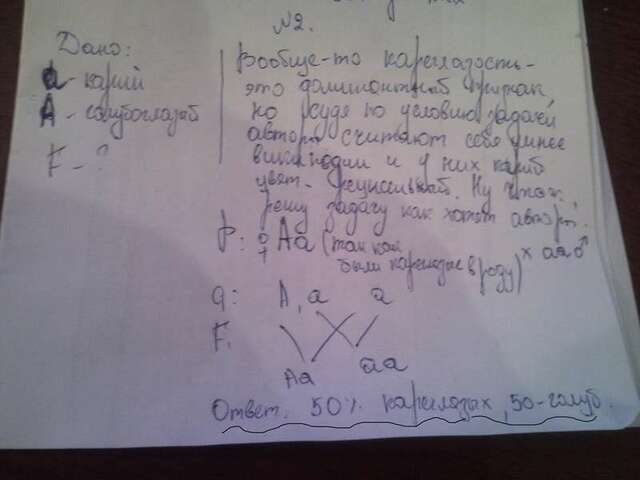 №2.
Дано:
a - карий
A - голубоглазый
F - ?
Вообще-то кареглазость -
это доминантный признак,
но судя по условию задачи,
авторы считают себя умнее
википедии и у них карий
цвет - рецессивный. Ну что ж,
решу задачу как хотят авторы.
P: ♀ Aa (так как были кареглазые в роду) × aa ♂
q: A, a a
F:
Aa aa
Ответ. 50% кареглазых, 50 - голуб.